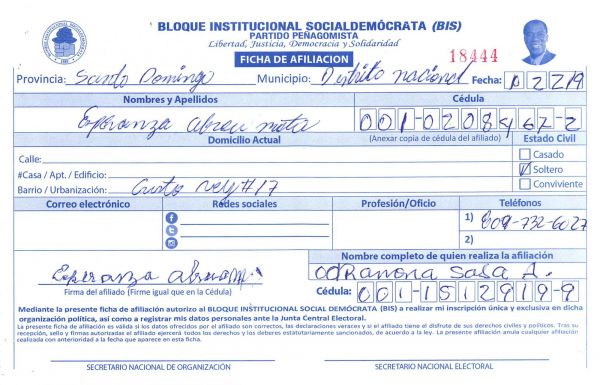 BLOQUE INSTITUCIONAL SOCIALDEMÓCRATA (BIS)
PARTIDO PEÑAGOMISTA
Libertad, Justicia, Democracia y Solidaridad
FICHA DE AFILIACION
18444
Provincia: Santo Domingo Municipio: Distrito nacional Fecha:
Nombres y Apellidos Cédula
Esperanza abreu mota 001-0208467-2
Domicilio Actual (Anexar copia de cédula del afiliado) Estado Civil
Calle: Casado
#Casa / Apt. / Edificio: Soltero
Barrio / Urbanización: Cristo #17 Conviviente
Correo electrónico Redes sociales Profesión/Oficio Teléfonos
1) 809-732-6027
2)
Nombre completo de quien realiza la afiliación
Esperanza abreu m. Ramona Sosa A.
Firma del afiliado (Firme igual que en la Cédula) Cédula: 001-1512919-9
Mediante la presente ficha de afiliación autorizo al BLOQUE INSTITUCIONAL SOCIAL DEMÓCRATA (BIS) a realizar mi inscripción única y exclusiva en dicha
organización política, así como a registrar mis datos personales ante la Junta Central Electoral.
La presente ficha de afiliación es válida si los datos ofrecidos por el afiliado son correctos, las declaraciones veraces y si el afiliado tiene el disfrute de sus derechos civiles y políticos. Tras su
recepción, sello y firmas autorizadas el afiliado ejercerá todos los derechos y los deberes estatutariamente sancionados, de acuerdo a la ley. La presente afiliación anula cualquier afiliación
realizada con anterioridad a la fecha que aparece en esta ficha.
SECRETARIO NACIONAL DE ORGANIZACIÓN SECRETARIO NACIONAL ELECTORAL